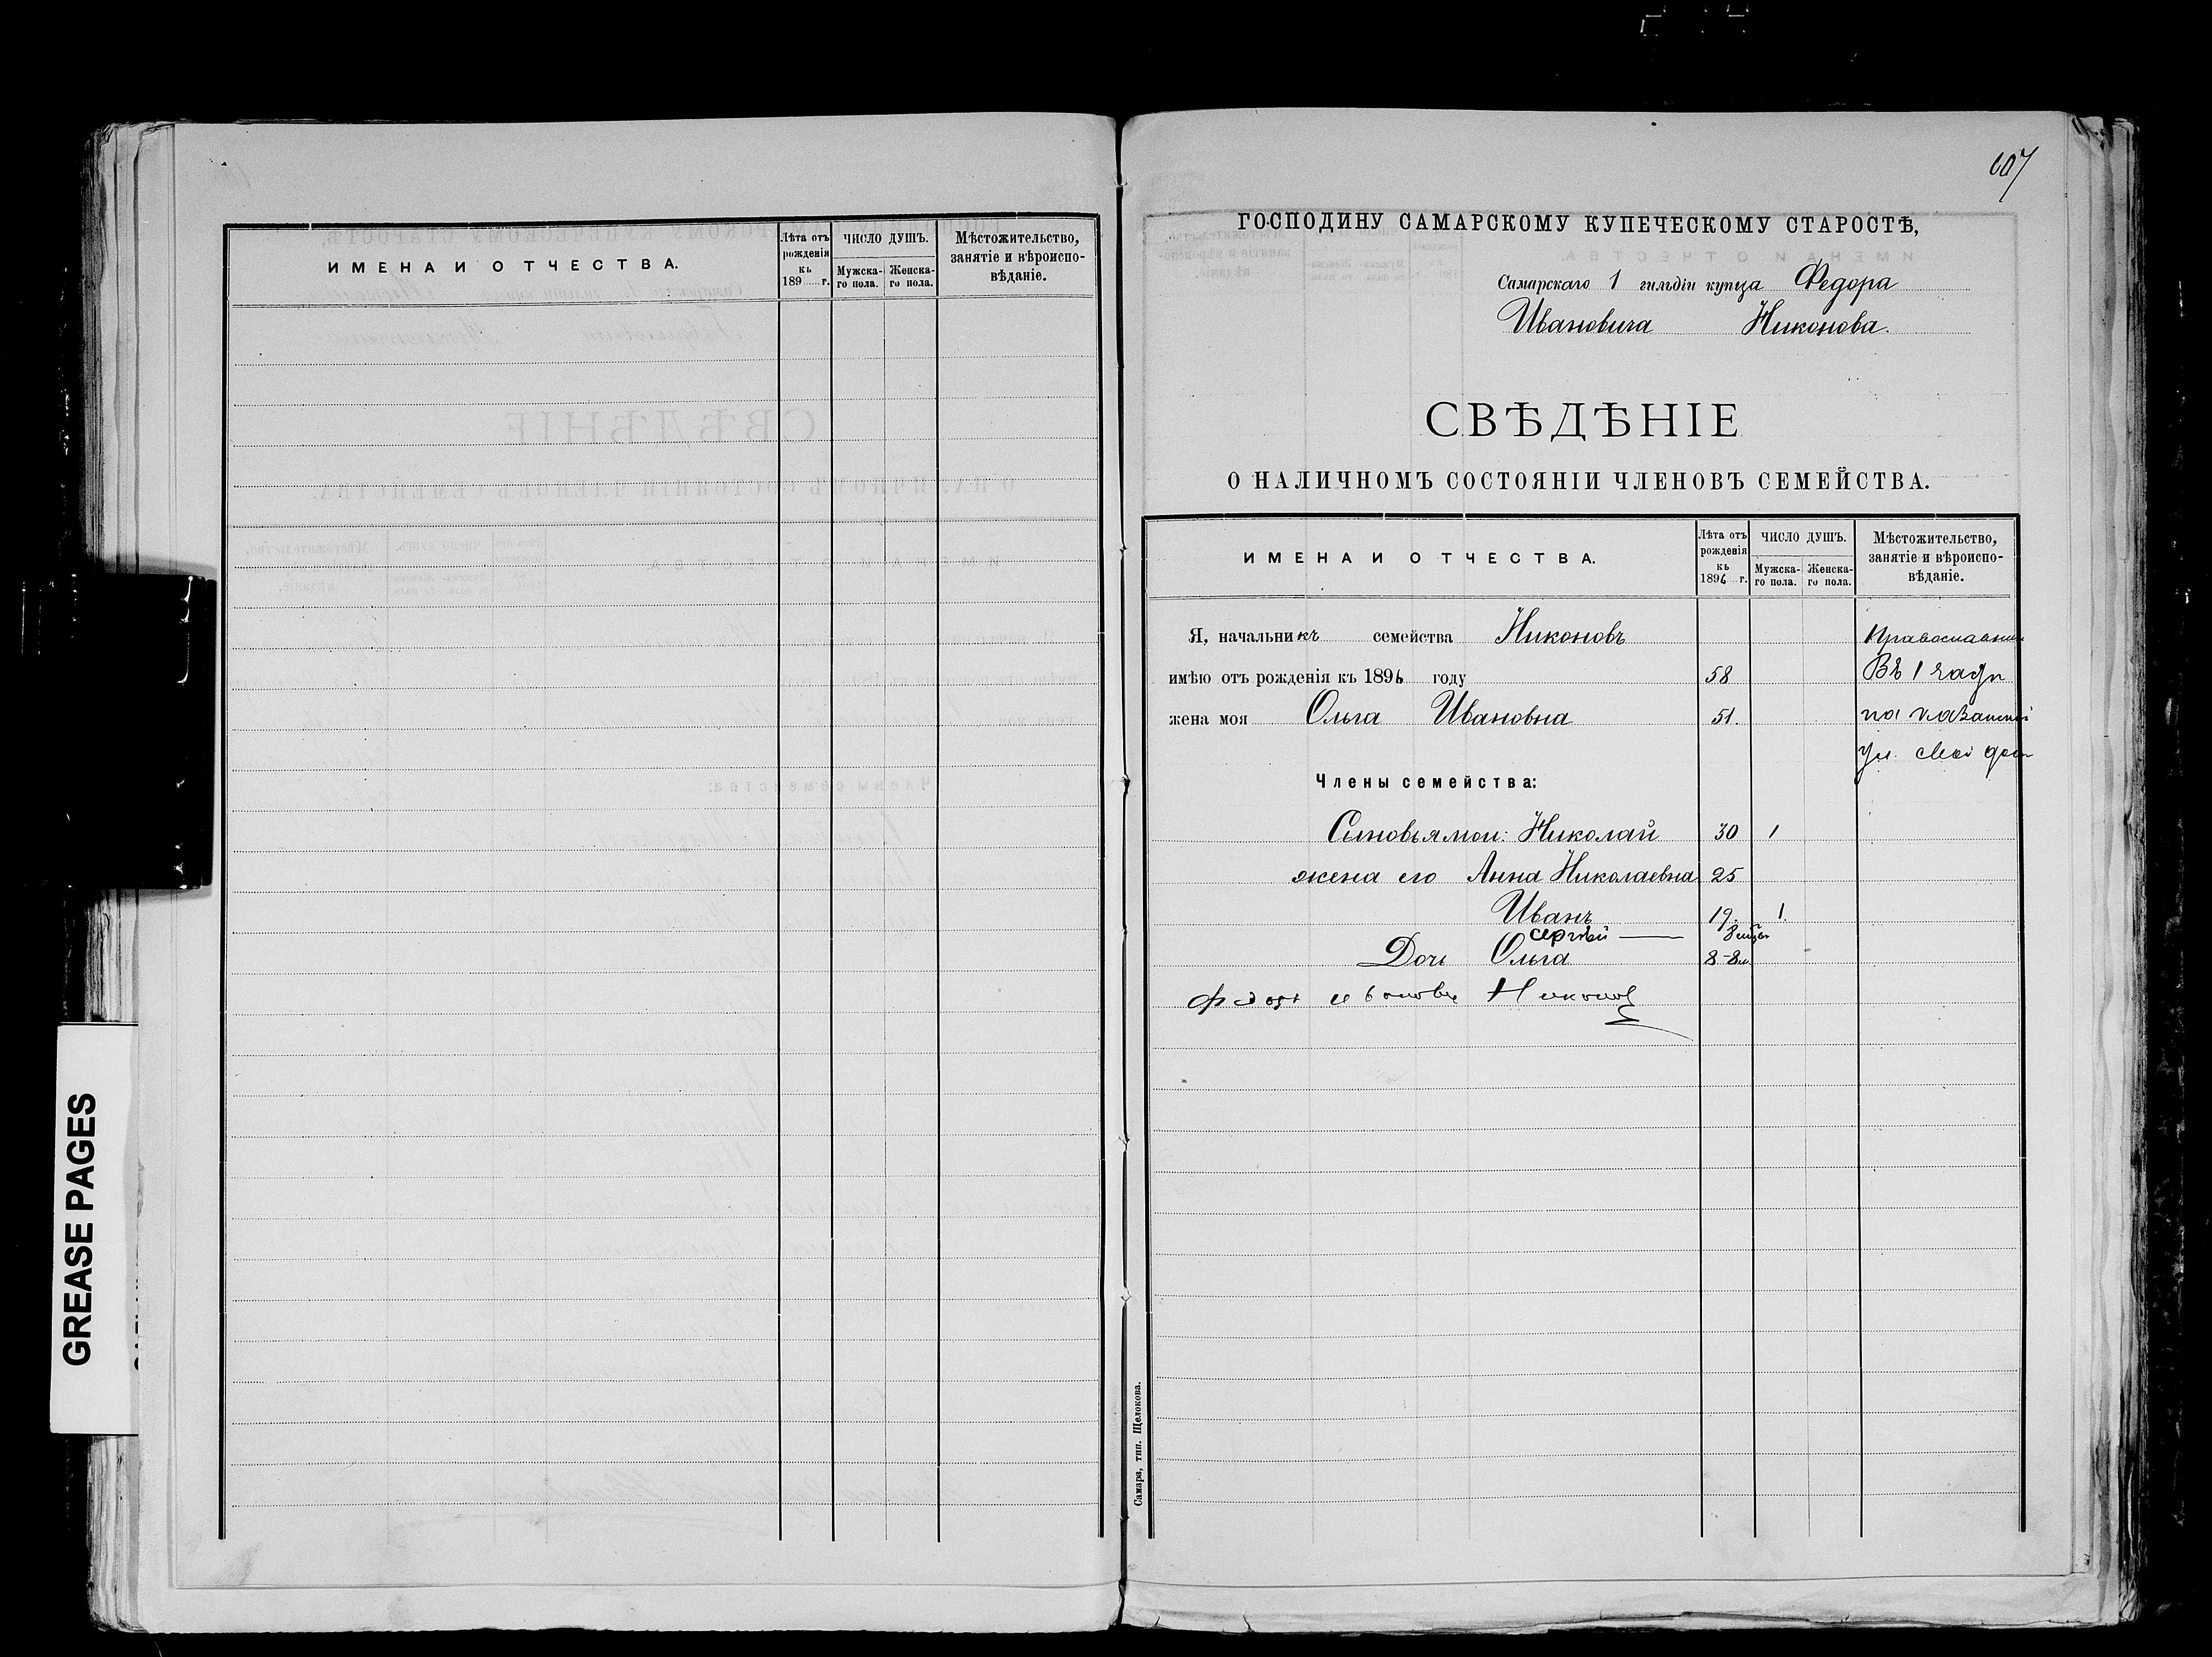 ИМЕНА И ОТЧЕСТВА.
Лѣта отъ рожденія къ 189 г.
ЧИСЛО ДУШЪ.
Мужска-го пола.
Женска-го пола.
Мѣстожительство, занятіе и вѣроиспо-вѣданіе.
GREASE PAGES
607
ГОСПОДИНУ САМАРСКОМУ КУПЕЧЕСКОМУ СТАРОСТѢ,
Самарскаго 1 гильдіи купца Федора
Ивановича Никонова.
СВѢДѢНІЕ
О НАЛИЧНОМЪ СОСТОЯНІИ ЧЛЕНОВЪ СЕМЕЙСТВА.
ИМЕНА И ОТЧЕСТВА.
Лѣта отъ рожденія къ 1896 г.
ЧИСЛО ДУШЪ.
Мужска-го пола.
Женска-го пола.
Мѣстожительство, занятіе и вѣроиспо-вѣданіе.
Я, начальникъ семейства Никоновъ
имѣю отъ рожденія къ 1896 году 58 Въ 1 части
жена моя Ольга Ивановна 51. на казанской
ул. свой домъ
Члены семейства:
Сыновья мои: Николай 30 1
жена его Анна Николаевна 25
Иванъ 19. 1.
Сергѣй —
Дочь Ольга 8
Никонов
Самара, тип. Щелокова.